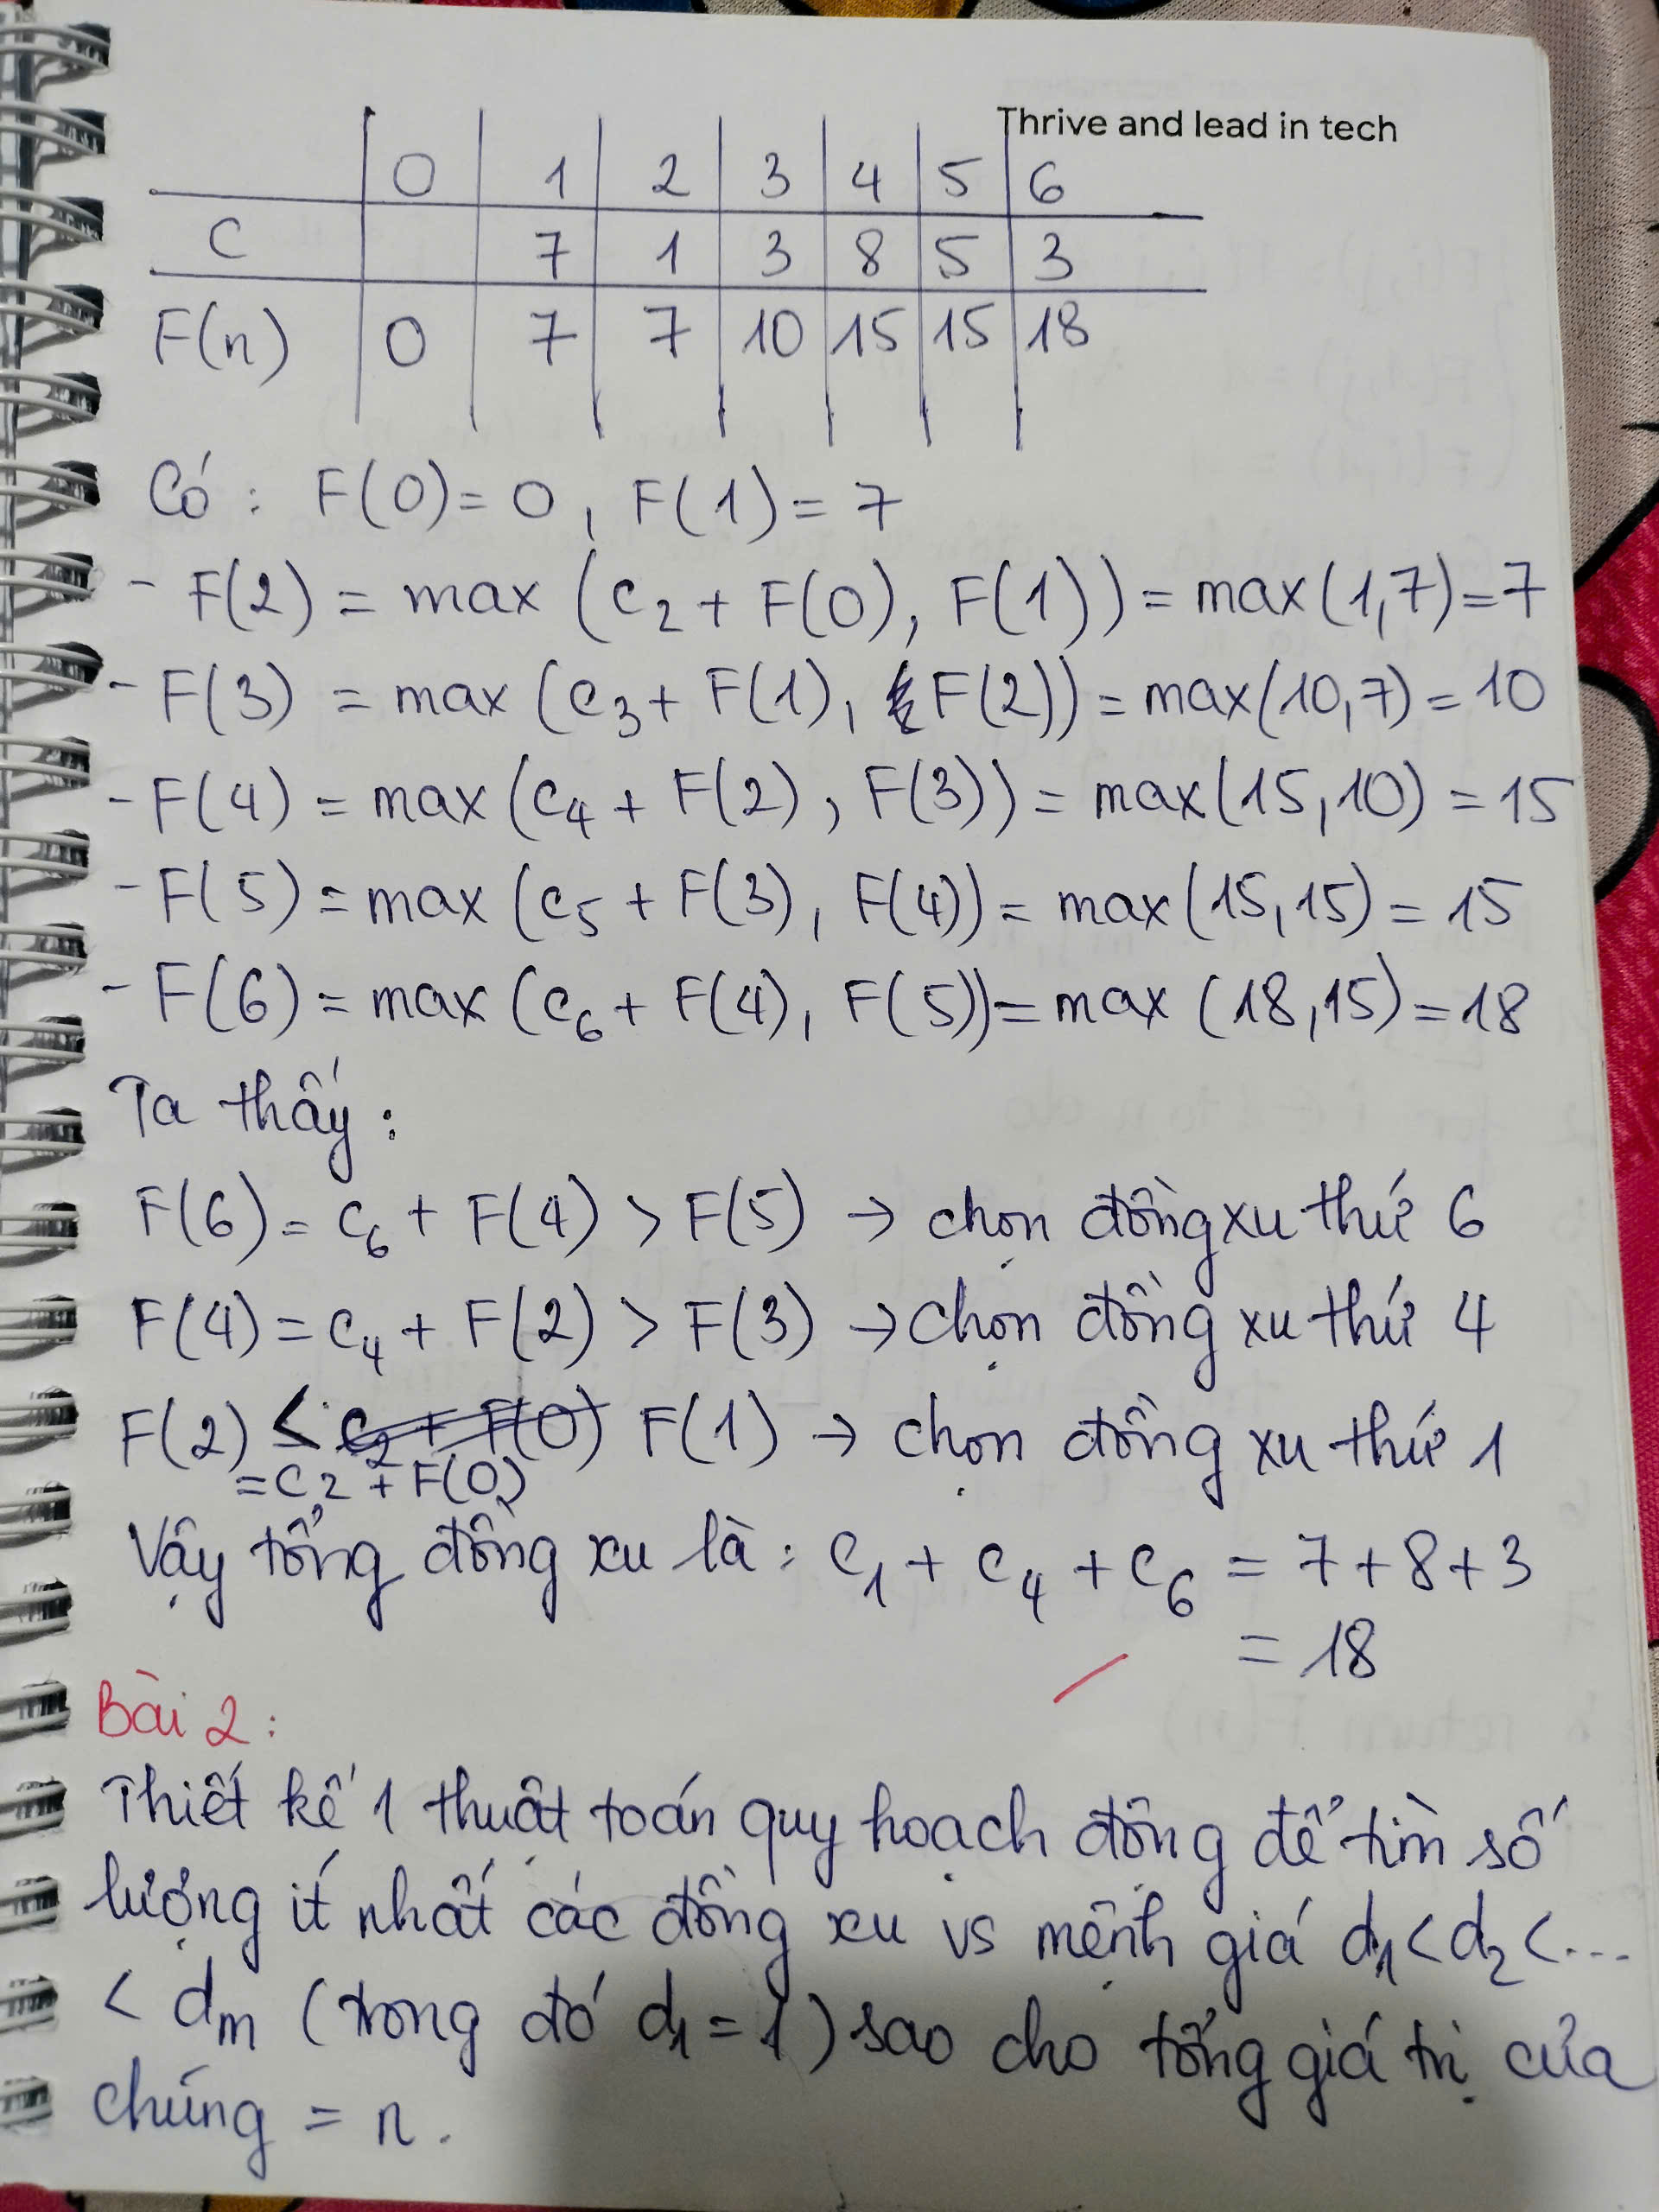 Thrive and lead in tech
0 1 2 3 4 5 6
C 7 1 3 8 5 3
F(n) 0 7 7 10 15 15 18
Có : F(0) = 0, F(1) = 7
- F(2) = max (c₂ + F(0), F(1)) = max(1,7) = 7
- F(3) = max (c₃ + F(1), F(2)) = max(10,7) = 10
- F(4) = max (c₄ + F(2), F(3)) = max(15,10) = 15
- F(5) = max (c₅ + F(3), F(4)) = max(15,15) = 15
- F(6) = max (c₆ + F(4), F(5)) = max (18,15) = 18
Ta thấy :
F(6) = c₆ + F(4) > F(5) → chọn đồng xu thứ 6
F(4) = c₄ + F(2) > F(3) → chọn đồng xu thứ 4
F(2) < c₂ + F(0) F(1) → chọn đồng xu thứ 1
= c₂ + F(0)
Vậy tổng đồng xu là : c₁ + c₄ + c₆ = 7 + 8 + 3
= 18
Bài 2 :
Thiết kế 1 thuật toán quy hoạch động để tìm số
lượng ít nhất các đồng xu vs mệnh giá d₁ < d₂ < ...
< dₘ (trong đó d₁ = 1) sao cho tổng giá trị của
chúng = n.